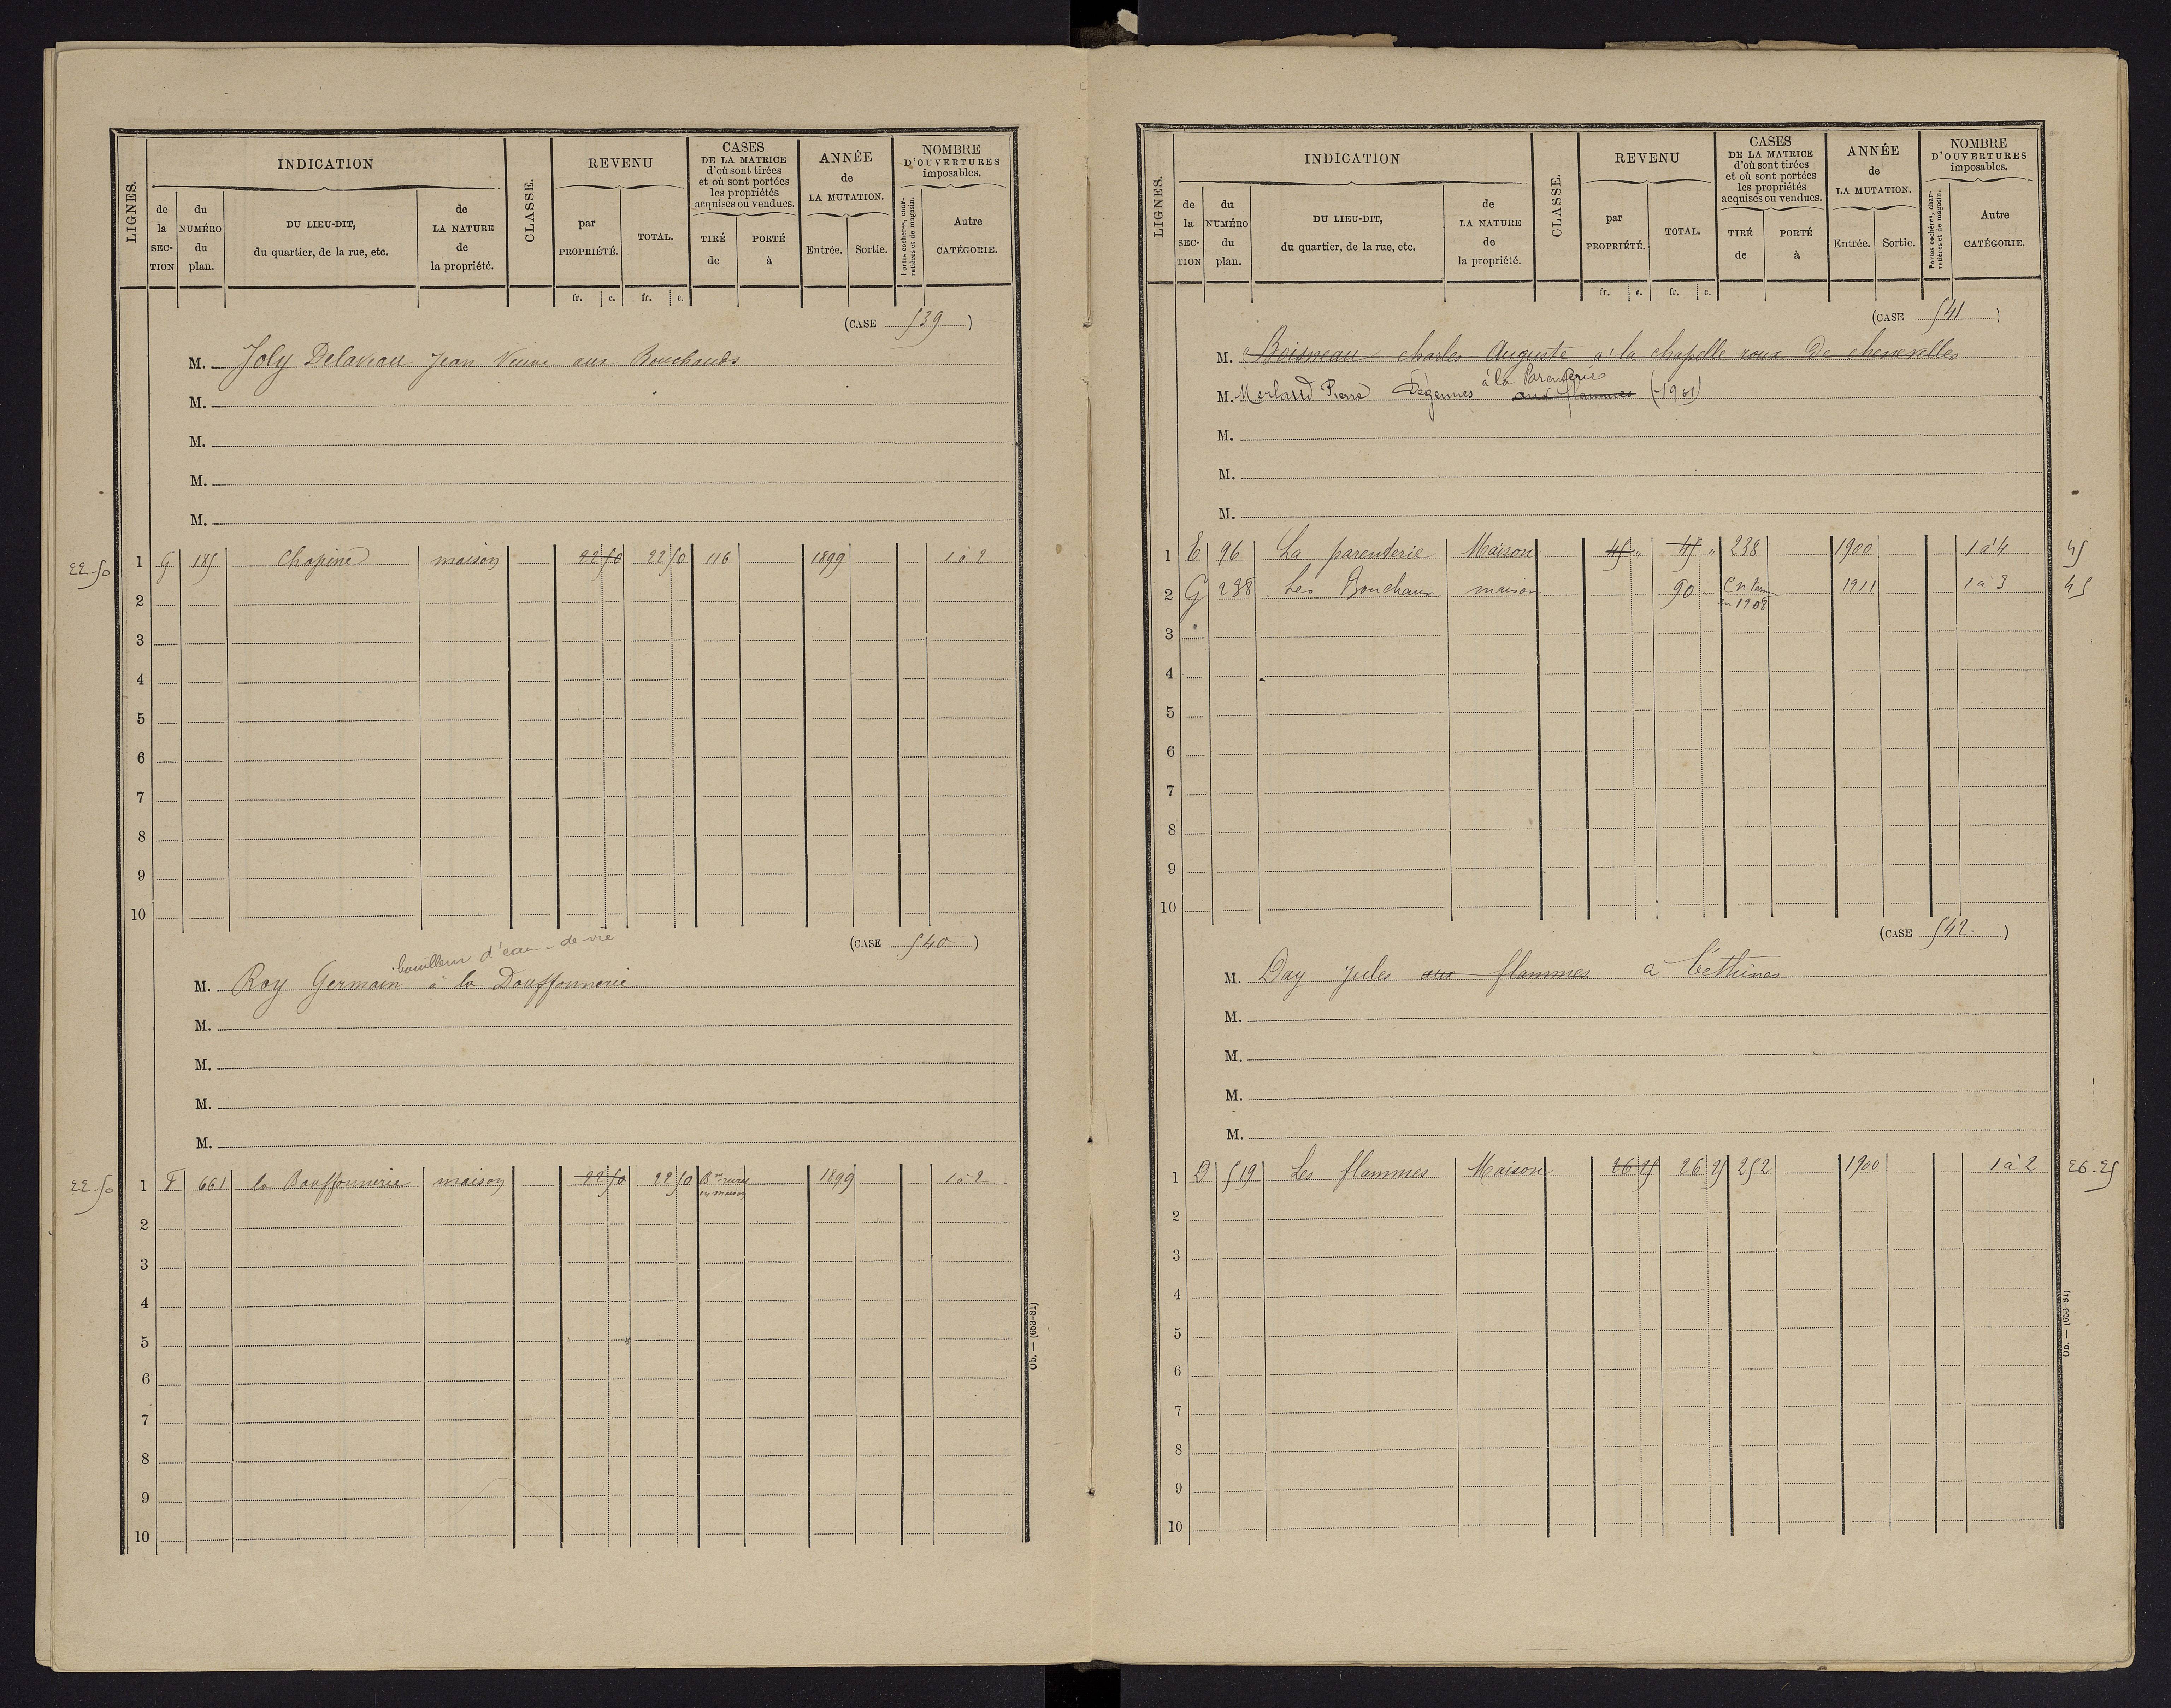 LIGNES.
INDICATION
de la SECTION
du NUMÉRO du plan.
DU LIEU-DIT, du quartier, de la rue, etc.
de LA NATURE de la propriété.
CLASSE.
REVENU
par PROPRIÉTÉ.
TOTAL.
fr. c. fr. c.
CASES DE LA MATRICE d'où sont tirées et où sont portées les propriétés acquises ou vendues.
TIRÉ de
PORTÉ à
ANNÉE de LA MUTATION.
Entrée. Sortie.
NOMBRE D'OUVERTURES imposables.
Portes cochères, charretières et de magasin.
Autre CATÉGORIE.
(CASE 539)
M. Joly Delaveau Jean Veuve aux Bouchauds
M.
M.
M.
M.
22-50 1 G 185 Chapine maison 22 50 22 50 116 1899 1 à 2
2
3
4
5
6
7
8
9
10
(CASE 540)
bouilleur d'eau-de-vie
M. Roy Germain à la Bouffonnerie
M.
M.
M.
M.
22-50 1 F 661 la Bouffonnerie maison 22 50 22 50 Bon rural en maison 1899 1 à 2
2
3
4
5
6
7
8
9
10
Ob. — (653-81)
LIGNES.
INDICATION
de la SECTION
du NUMÉRO du plan.
DU LIEU-DIT, du quartier, de la rue, etc.
de LA NATURE de la propriété.
CLASSE.
REVENU
par PROPRIÉTÉ.
TOTAL.
fr. c. fr. c.
CASES DE LA MATRICE d'où sont tirées et où sont portées les propriétés acquises ou vendues.
TIRÉ de
PORTÉ à
ANNÉE de LA MUTATION.
Entrée. Sortie.
NOMBRE D'OUVERTURES imposables.
Portes cochères, charretières et de magasin.
Autre CATÉGORIE.
(CASE 541)
M. Boisneau charles Auguste à la chapelle roux de chenevelles
à la Parenterie
M. Merlaud Pierre Dégennes aux flammes (-1901)
M.
M.
M.
1 E 96 La parenterie Maison 45 " 45 " 238 1900 1 à 4 45
2 G 238 Les Bouchaux maison 90 en 1908 1911 1 à 3 45
3
4
5
6
7
8
9
10
(CASE 542)
M. Day Jules aux flammes à Béthines
M.
M.
M.
M.
1 D 519 Les flammes Maison 26 25 26 25 252 1900 1 à 2 26-25
2
3
4
5
6
7
8
9
10
Ob. — (653-81)